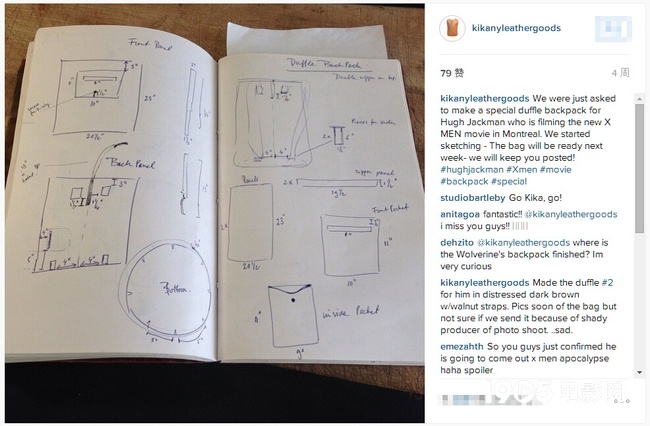 Front Panel
3"
8"
8"
1 1/2"
10"
25"
20 1/2"
Back Panel
3"
4"
4"
Bottom
Duffle BackPack
Double zipper on top
2 x
6"
1 1/2"
Panels
2 x
23"
20 1/2
zipper panel
2 x
1 1/2"
19 1/2
Front Pocket
11"
10"
inside Pocket
9"
kikanyleathergoods
79 赞
4 周
kikanyleathergoods We were just asked
to make a special duffle backpack for
Hugh Jackman who is filming the new X
MEN movie in Montreal. We started
sketching - The bag will be ready next
week- we will keep you posted!
#hughjackman #Xmen #movie
#backpack #special
studiobartleby Go Kika, go!
anitagoa fantastic!! @kikanyleathergoods
i miss you guys!!
dehzito @kikanyleathergoods where is
the Wolverine's backpack finished? Im
very curious
kikanyleathergoods Made the duffle #2
for him in distressed dark brown
w/walnut straps. Pics soon of the bag but
not sure if we send it because of shady
producer of photo shoot. ..sad.
emezahth So you guys just confirmed he
is going to come out x men apocalypse
haha spoiler
1905电影网